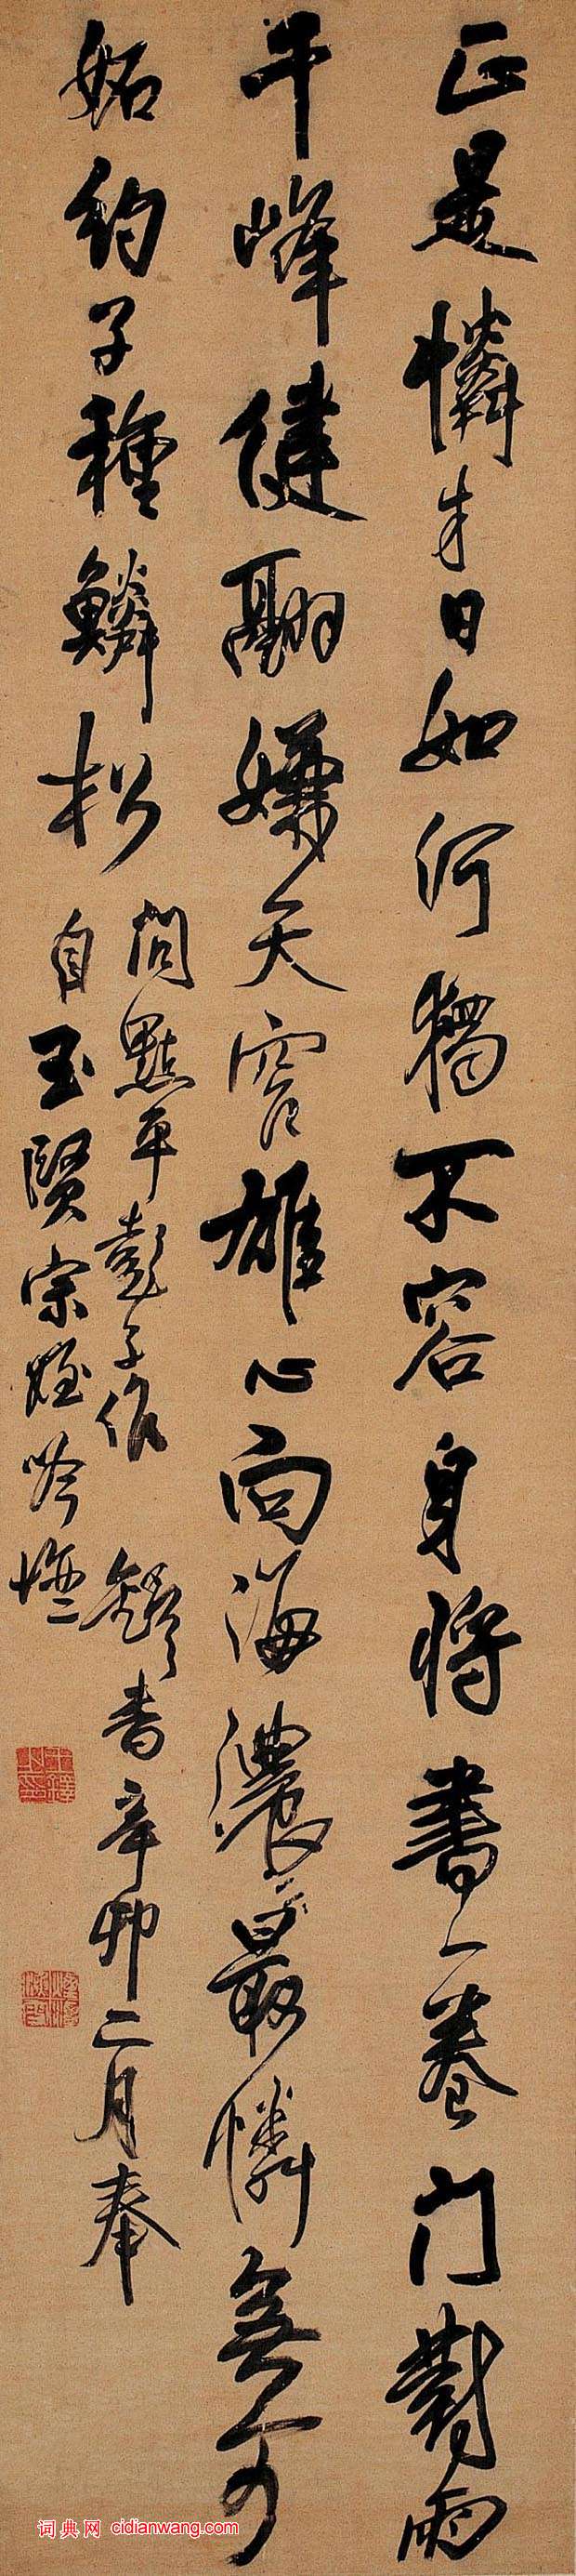 正是憐才日如何獨不容身將書一卷門對雨
千峰健翮嫌天窄雄心向海濃最憐無可
妬約子種鱗松
問點平彭子作 鐸書辛卯二月奉
自玉賢宗姪吟壇
词典网 cidianwang.com